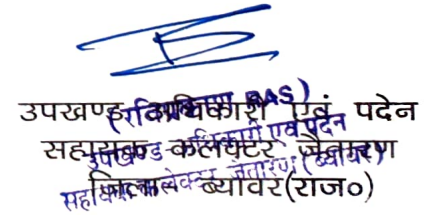 उपखण्ड अधिकारी एवं पदेन
सहायक कलेक्टर जैतारण
जिला ब्यावर(राज०)
(रवि प्रकाश RAS)
उपखण्ड अधिकारी एवं पदेन
सहायक कलेक्टर जैतारण (ब्यावर)